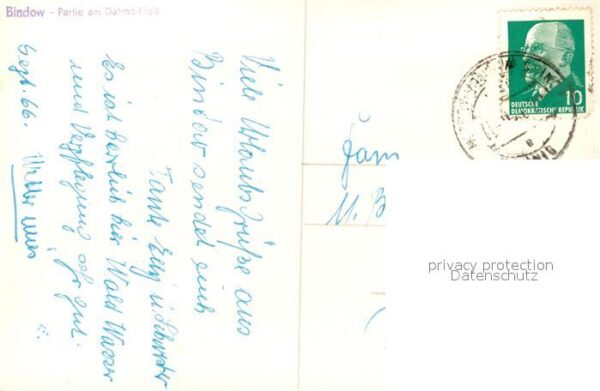 Bindow - Partie am Dahme-Fließ
Viele Urlaubsgrüße aus
Bindow sendet euch
Tante Elly u. Schwester
Es ist herrlich hier Wald Wasser
und Verpflegung sehr gut.
Sept. 66.
DEUTSCHE
DEMOKRATISCHE REPUBLIK
10
Fam
privacy protection
Datenschutz